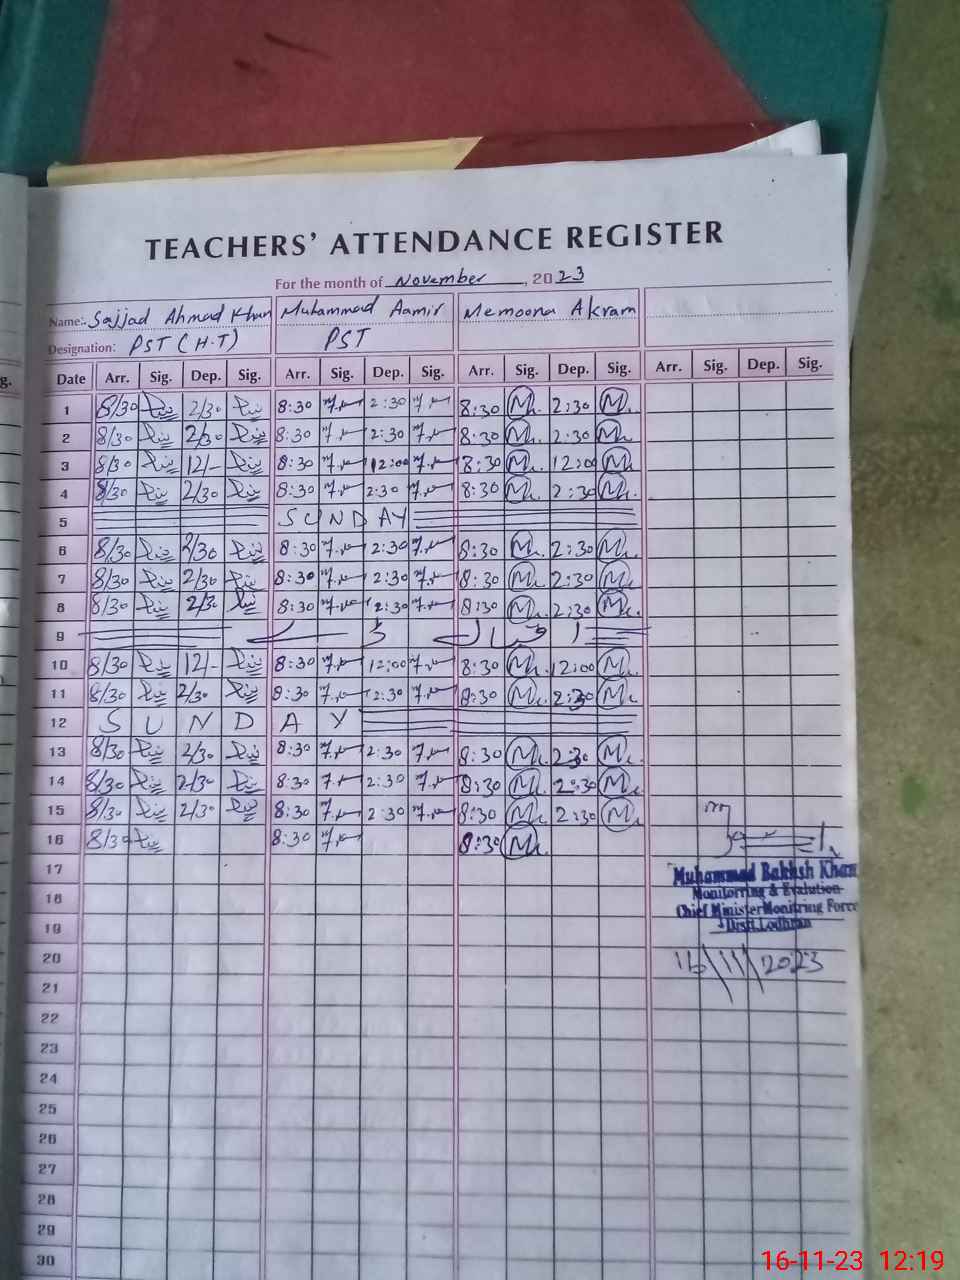 TEACHERS' ATTENDANCE REGISTER
For the month of November, 2023
Name: Sajjad Ahmad Khan Muhammad Aamir Memoona Akram
Designation: PST (H.T) PST
Date Arr. Sig. Dep. Sig. Arr. Sig. Dep. Sig. Arr. Sig. Dep. Sig. Arr. Sig. Dep. Sig.
1 8/30 2/30 8:30 2:30 8:30 2:30
2 8/30 2/30 8:30 2:30 8:30 2:30
3 8/30 12/- 8:30 12:00 8:30 12:00
4 8/30 2/30 8:30 2:30 8:30 2:30
5 SUNDAY
6 8/30 2/30 8:30 2:30 8:30 2:30
7 8/30 2/30 8:30 2:30 8:30 2:30
8 8/30 2/30 8:30 2:30 8:30 2:30
9 اقبال ڈے
10 8/30 12/- 8:30 12:00 8:30 12:00
11 8/30 2/30 8:30 2:30 8:30 2:30
12 SUNDAY
13 8/30 2/30 8:30 2:30 8:30 2:30
14 8/30 2/30 8:30 2:30 8:30 2:30
15 8/30 2/30 8:30 2:30 8:30 2:30
16 8/30 8:30 8:30
17
Muhammad Bakhsh Khan
18
Monitorring & Evalution
Chief Minister Monitring Force
19
Distt. Lodhran
20
16/11/2023
21
22
23
24
25
26
27
28
29
30
g.
16-11-23 12:19